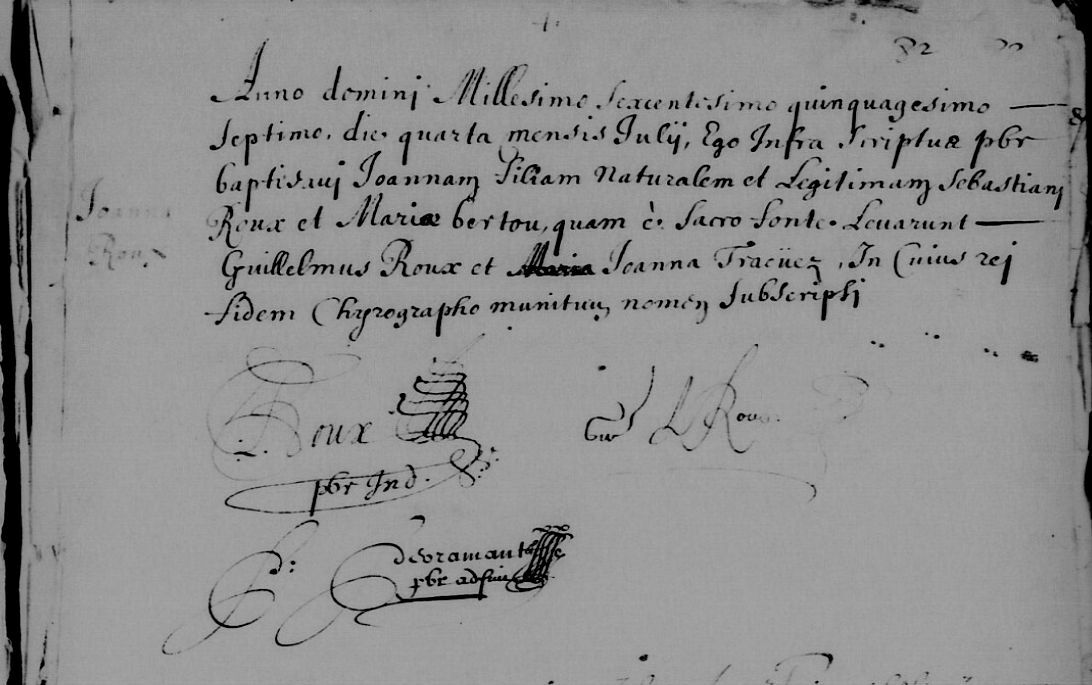 Joanna
Roux
Anno dominj Millesimo sexcentesimo quinquagesimo
septimo, die quarta mensis Julij, Ego Infra Scriptus pbr
baptisauj Joannam filiam Naturalem et Legitimam Sebastianj
Roux et Mariæ bertou, quam è sacro fonte Leuarunt
Guillelmus Roux et Joanna Tracüez, In Cuius rej
fidem Chyrographo munituum nomen Subscripsj
Roux
pbr Ind.
L Roux
devramant
pbr